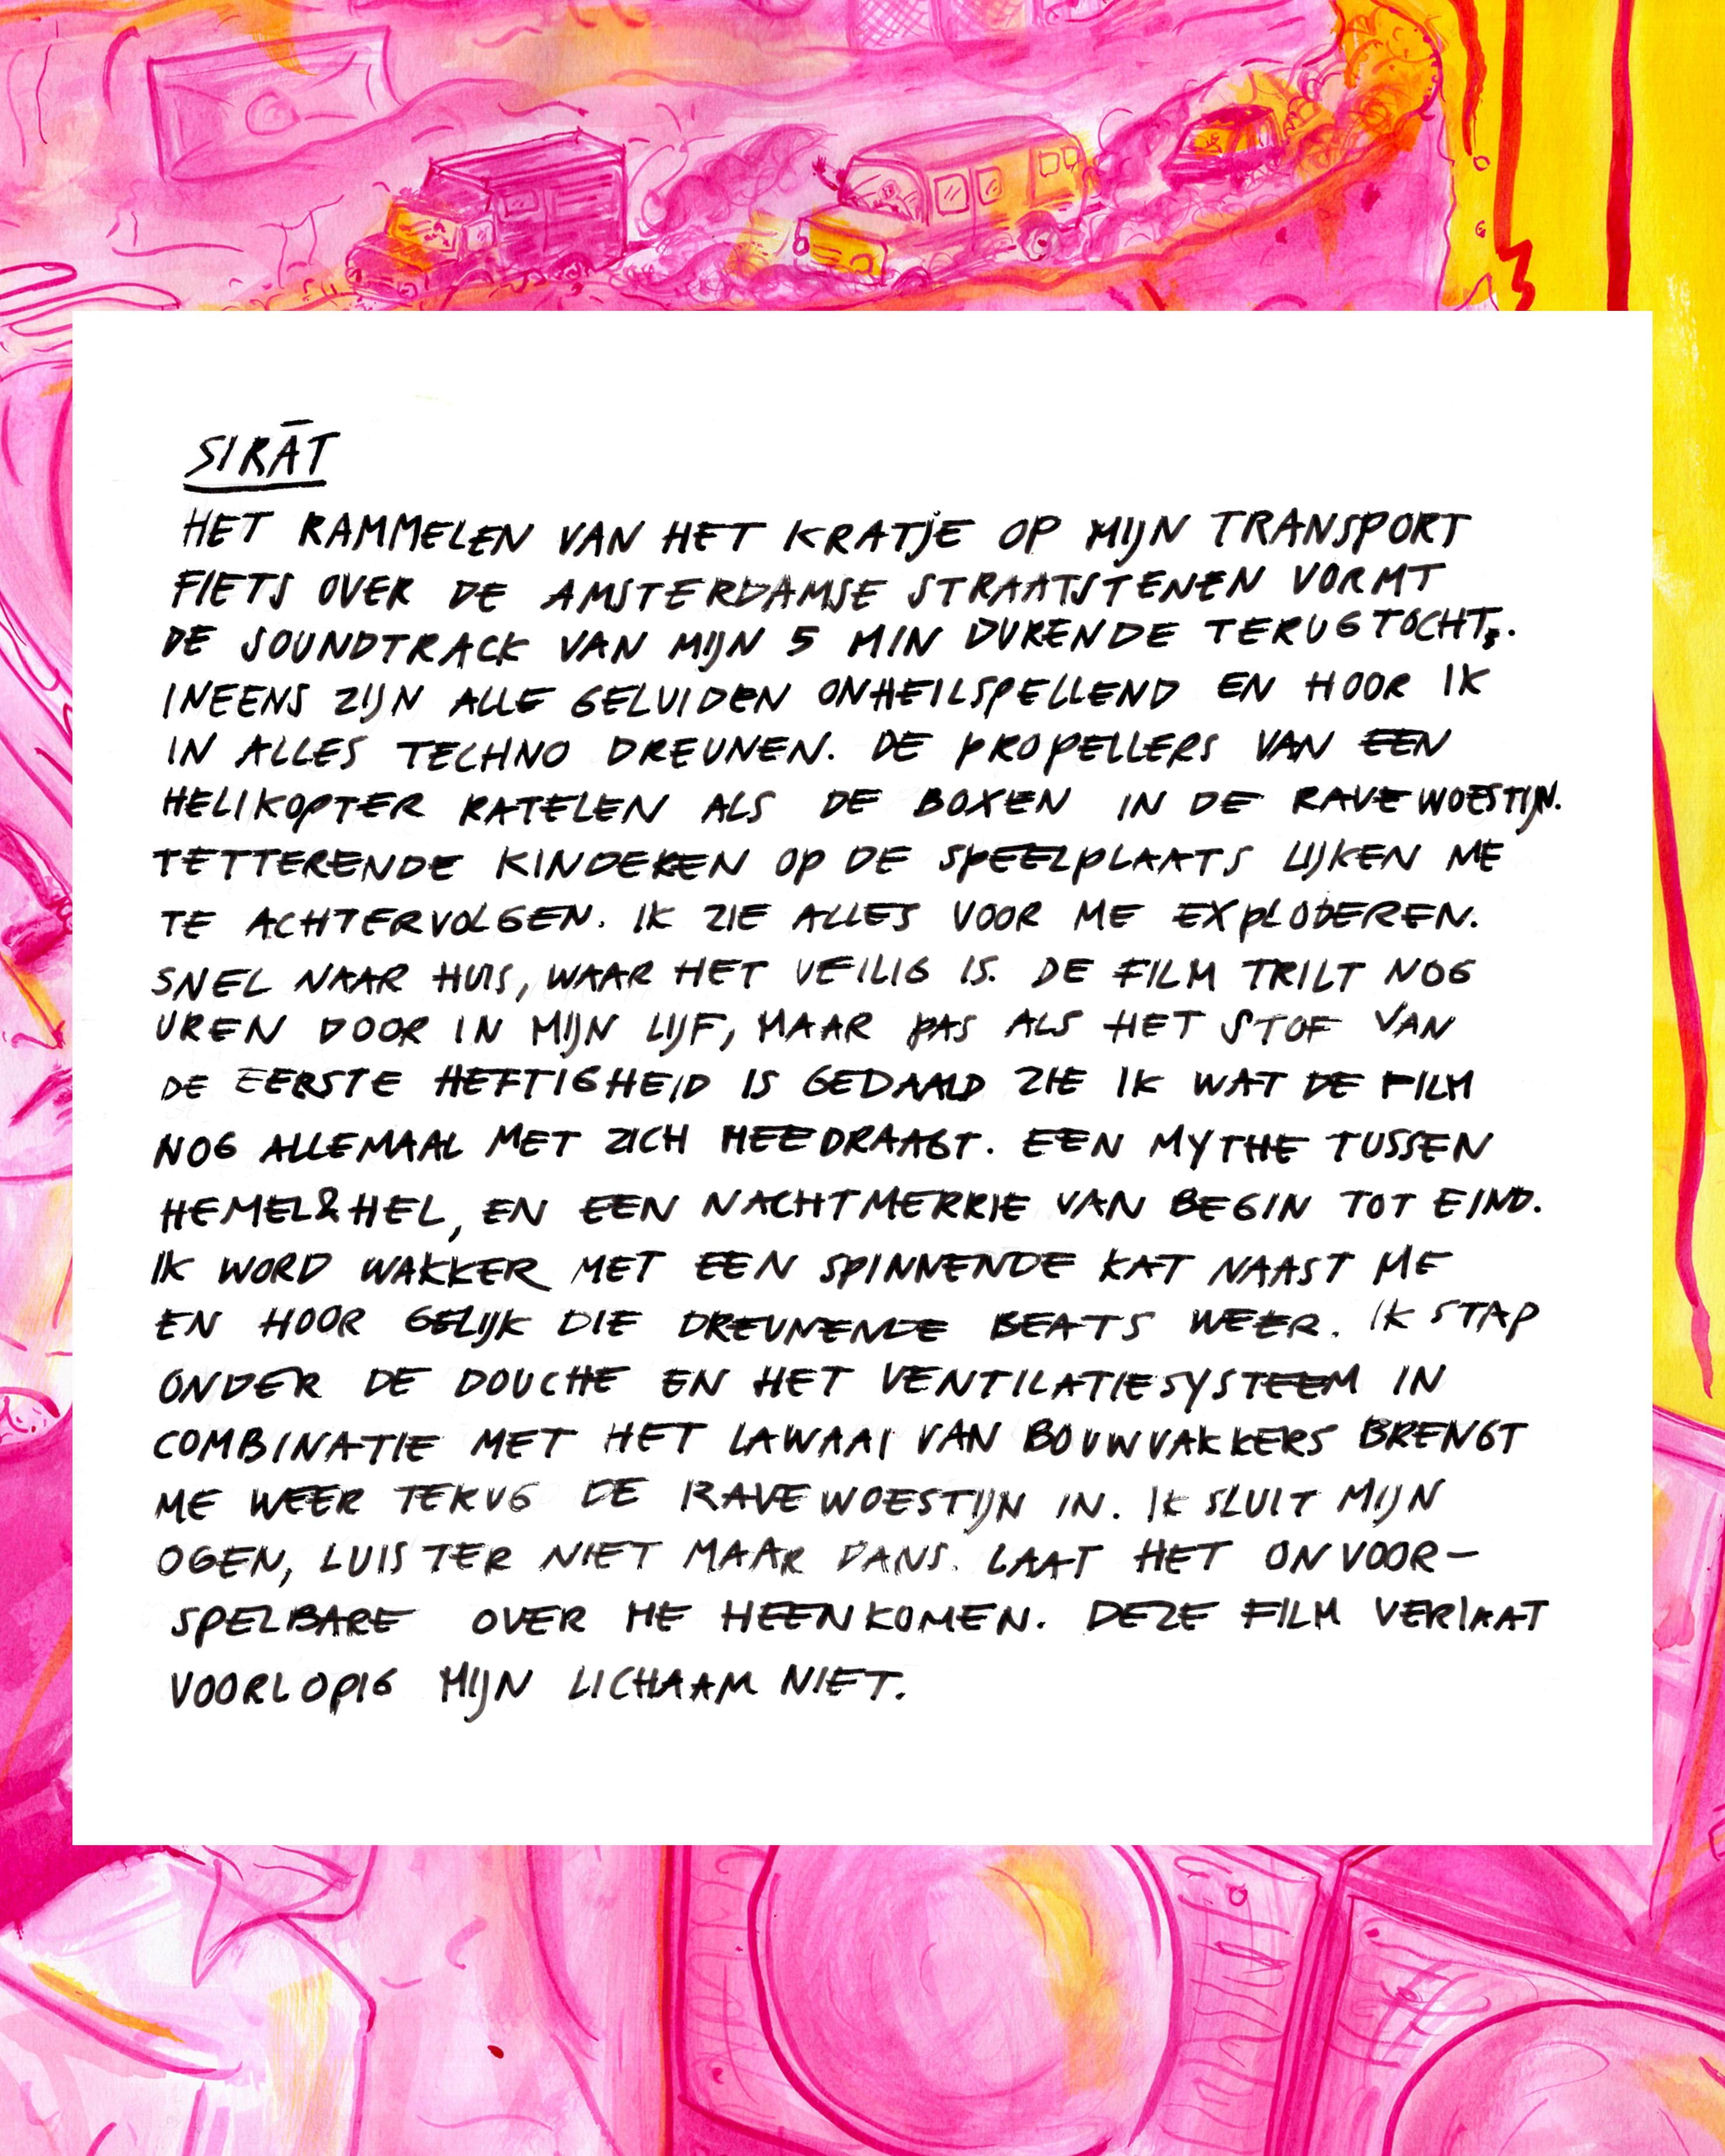 SIRĀT
HET RAMMELEN VAN HET KRATJE OP MIJN TRANSPORT
FIETS OVER DE AMSTERDAMSE STRAATSTENEN VORMT
DE SOUNDTRACK VAN MIJN 5 MIN DURENDE TERUGTOCHT.
INEENS ZIJN ALLE GELUIDEN ONHEILSPELLEND EN HOOR IK
IN ALLES TECHNO DREUNEN. DE PROPELLERS VAN EEN
HELIKOPTER RATELEN ALS DE BOXEN IN DE RAVEWOESTIJN.
TETTERENDE KINDEREN OP DE SPEELPLAATS LIJKEN ME
TE ACHTERVOLGEN. IK ZIE ALLES VOOR ME EXPLODEREN.
SNEL NAAR HUIS, WAAR HET VEILIG IS. DE FILM TRILT NOG
UREN DOOR IN MIJN LIJF, MAAR PAS ALS HET STOF VAN
DE EERSTE HEFTIGHEID IS GEDAALD ZIE IK WAT DE FILM
NOG ALLEMAAL MET ZICH MEEDRAAGT. EEN MYTHE TUSSEN
HEMEL&HEL, EN EEN NACHTMERRIE VAN BEGIN TOT EIND.
IK WORD WAKKER MET EEN SPINNENDE KAT NAAST ME
EN HOOR GELIJK DIE DREUNENDE BEATS WEER. IK STAP
ONDER DE DOUCHE EN HET VENTILATIESYSTEEM IN
COMBINATIE MET HET LAWAAI VAN BOUWVAKKERS BRENGT
ME WEER TERUG DE RAVEWOESTIJN IN. IK SLUIT MIJN
OGEN, LUISTER NIET MAAR DANS. LAAT HET ONVOOR-
SPELBARE OVER ME HEENKOMEN. DEZE FILM VERLAAT
VOORLOPIG MIJN LICHAAM NIET.